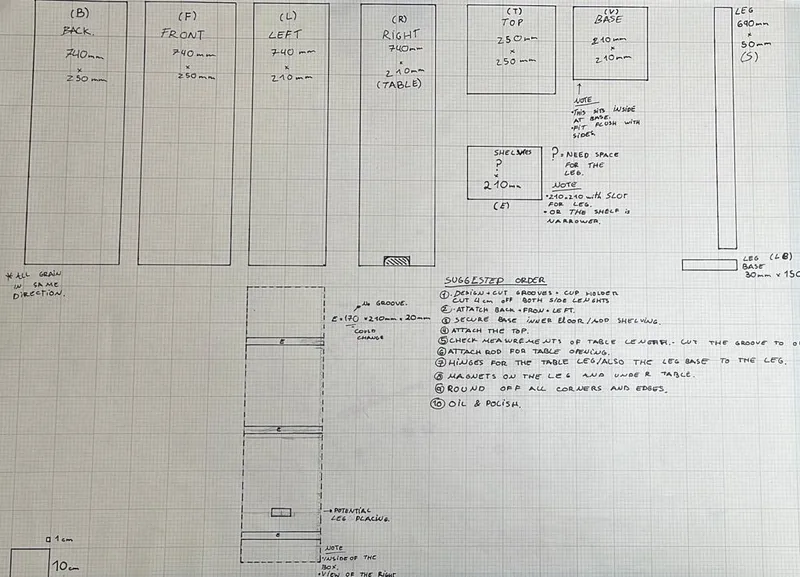 (B)
BACK.
740mm
×
250mm
(F)
FRONT
740mm
×
250mm
(L)
LEFT
740 mm
×
210mm
(R)
RIGHT
740mm
×
210mm
(TABLE)
(T)
TOP
250mm
×
250mm
(V)
BASE
210mm
×
210mm
NOTE
•THIS SITS INSIDE
AT BASE.
•FIT FLUSH WITH
SIDES
LEG
690mm
×
50mm
(S)
SHELVES
?
×
210mm
(E)
? = NEED SPACE
FOR THE
LEG.
NOTE
•210×210 with SLOT
FOR LEG.
•OR THE SHELF is
NARROWER.
LEG (LB)
BASE
30mm × 150
* ALL GRAIN
IN SAME
DIRECTION.
NO GROOVE.
E=170 × 210mm × 20mm
COULD
CHANGE
E
E
E
→POTENTIAL
LEG PLACING.
NOTE
•INSIDE OF THE
BOX.
•VIEW OF THE RIGHT
SUGGESTED ORDER
① DESIGN + CUT GROOVES + CUP HOLDER
CUT 4cm OFF BOTH SIDE LENGHTS
② ATTATCH BACK + FRON + LEFT.
③ SECURE BASE INNER FLOOR/ADD SHELVING.
④ ATTACH THE TOP.
⑤ CHECK MEASUREMENTS OF TABLE LENGTH. CUT THE GROOVE TO
⑥ ATTACH ROD FOR TABLE OPENING.
⑦ HINGES FOR THE TABLE LEG/ALSO THE LEG BASE TO THE LEG.
⑧ MAGNETS ON THE LEG AND UNDER TABLE.
⑨ ROUND OFF ALL CORNERS AND EDGES.
⑩ OIL & POLISH.
1cm
10cm